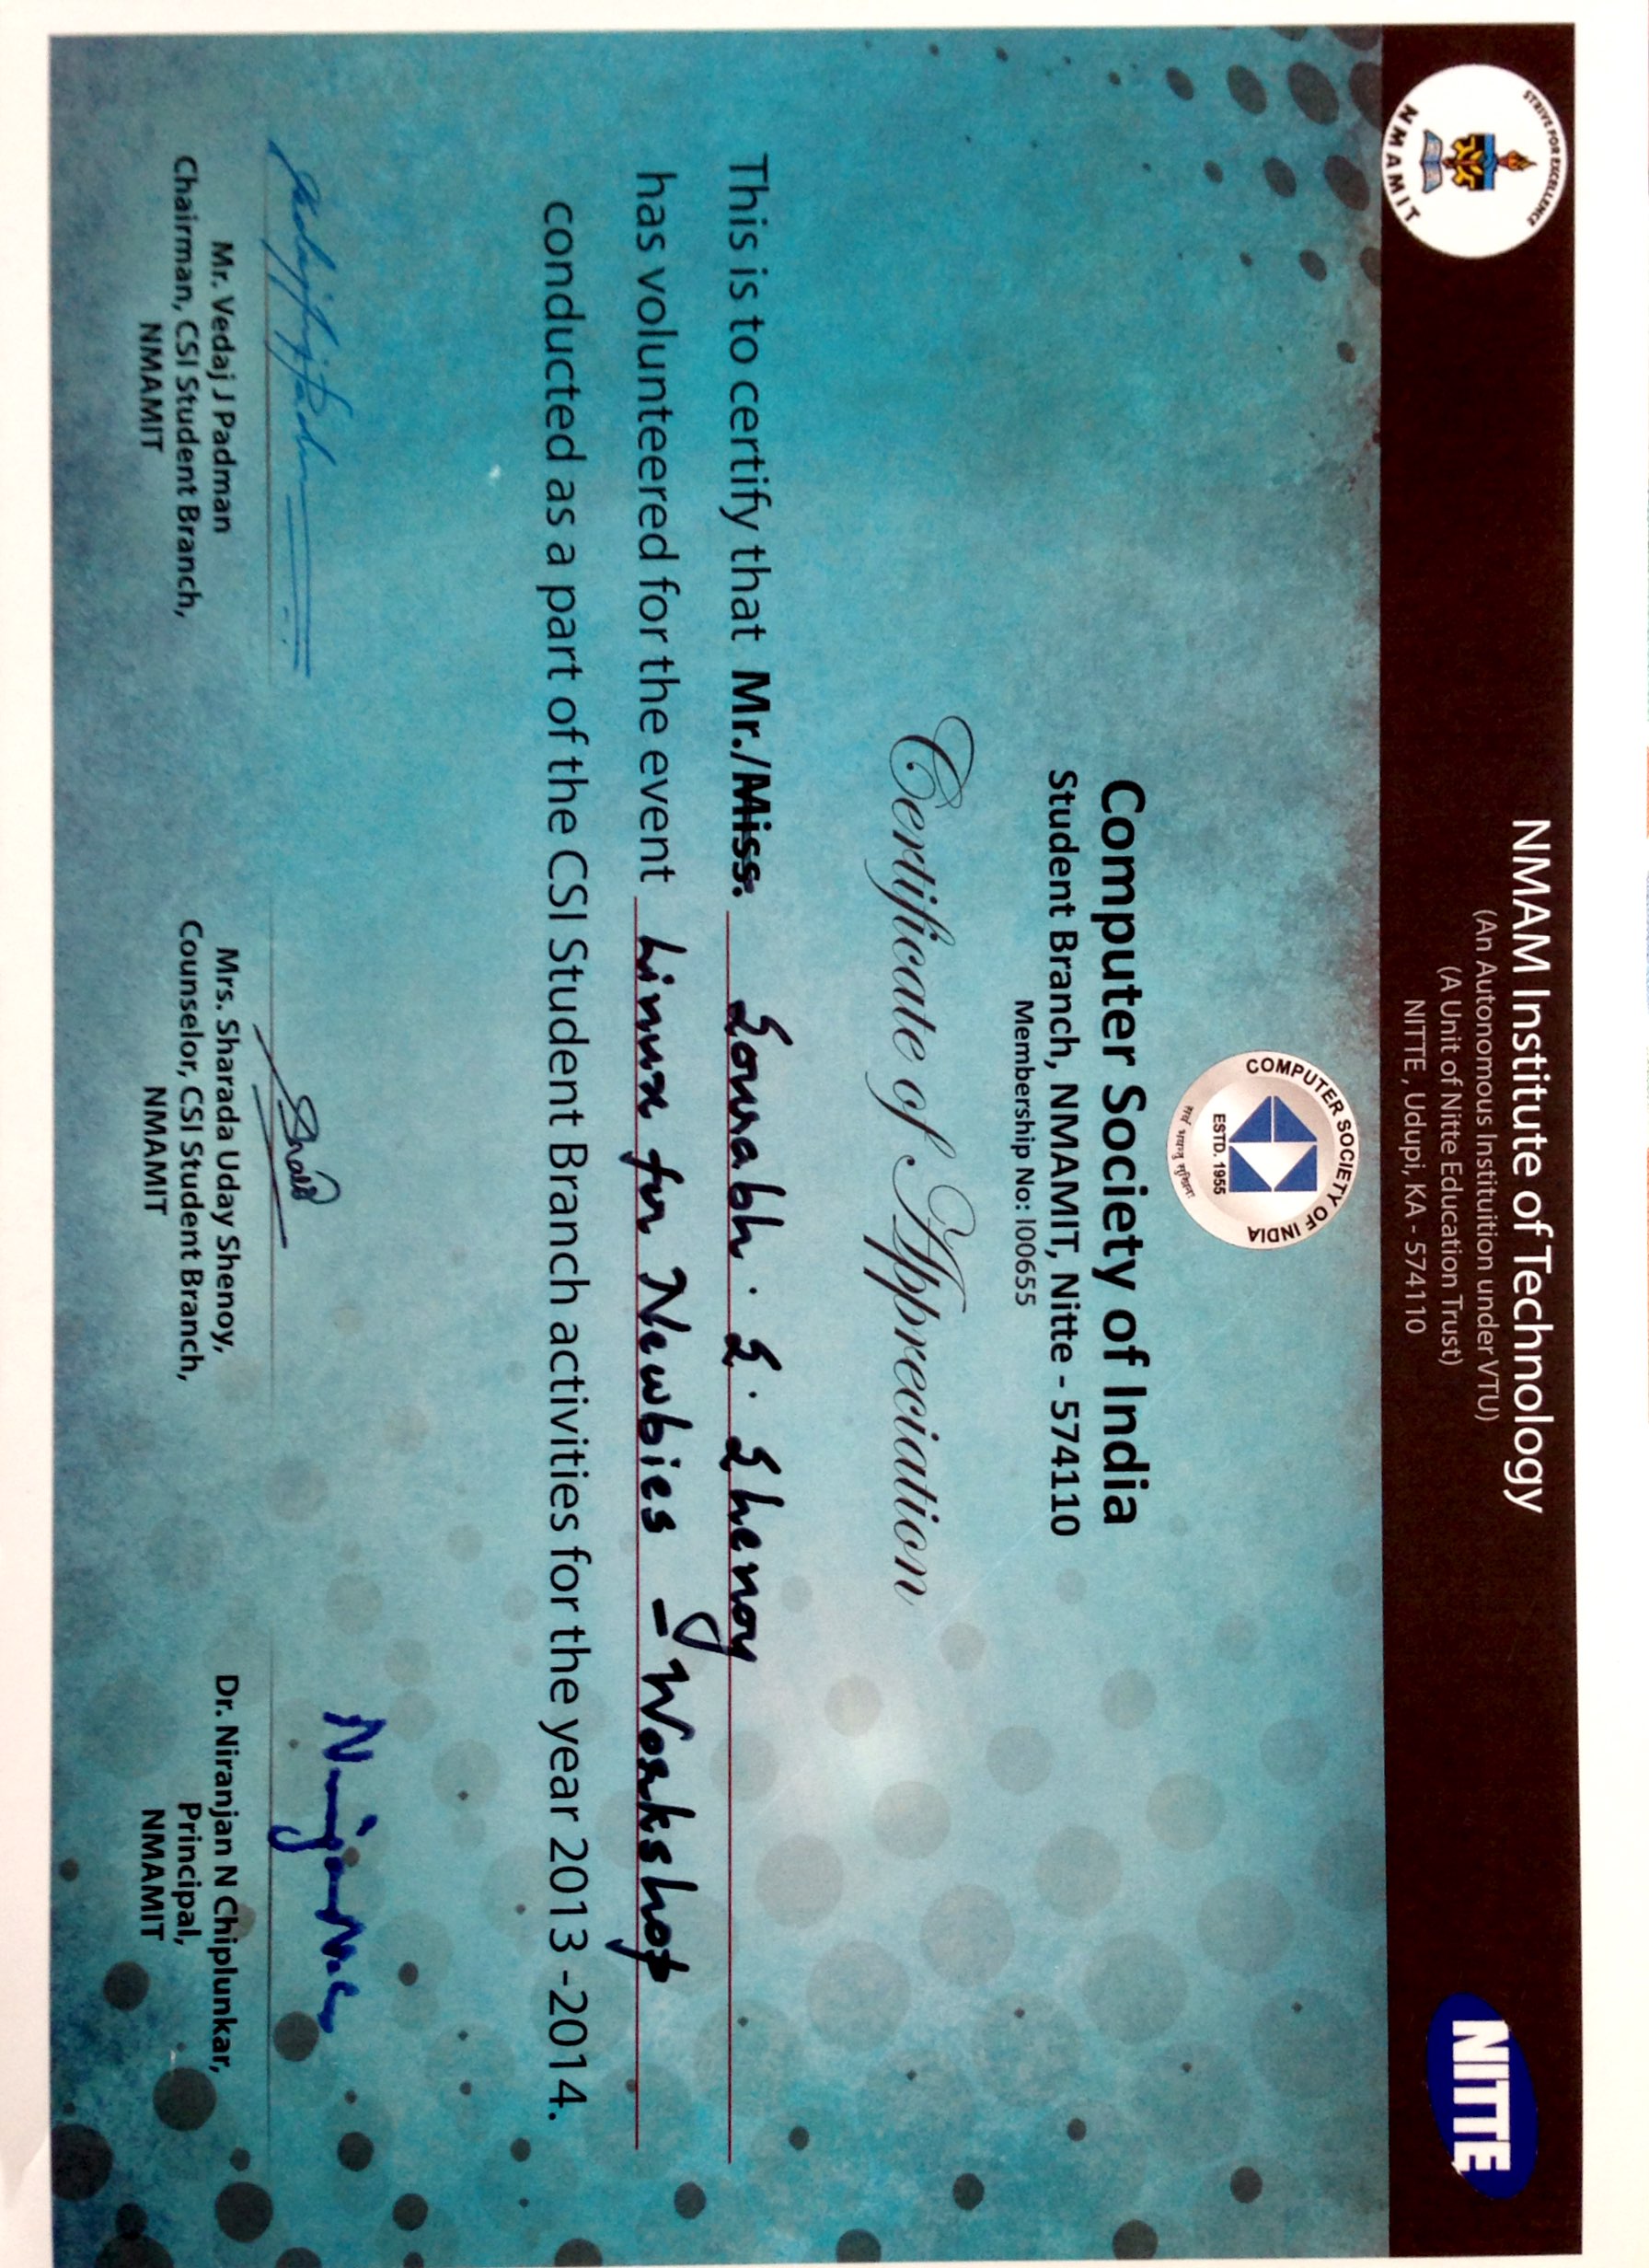 STRIVE FOR EXCELLENCE
NMAMIT
NMAM Institute of Technology
(An Autonomous Instituition under VTU)
(A Unit of Nitte Education Trust)
NITTE , Udupi, KA - 574110
NITTE
COMPUTER SOCIETY OF INDIA
ESTD. 1955
सर्वे भवन्तु सुखिनः
Computer Society of India
Student Branch, NMAMIT, Nitte - 574110
Membership No: I00655
Certificate of Appreciation
This is to certify that Mr./Miss. Sourabh . S. Shenoy
has volunteered for the event Linux for Newbies - Workshop
conducted as a part of the CSI Student Branch activities for the year 2013 -2014.
Mr. Vedaj J Padman
Chairman, CSI Student Branch,
NMAMIT
Mrs. Sharada Uday Shenoy,
Counselor, CSI Student Branch,
NMAMIT
Dr. Niranjan N Chiplunkar,
Principal,
NMAMIT